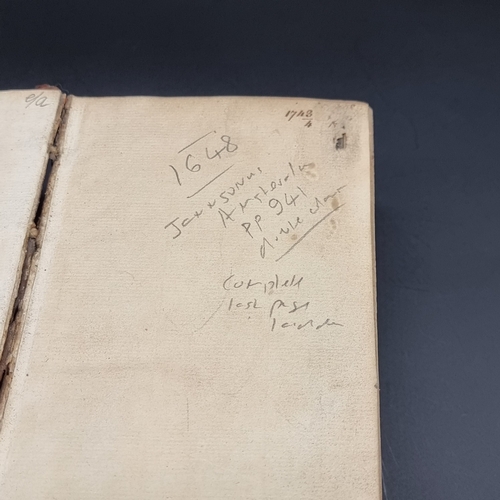 e/a
1743/4
1648
Janssonius
Amsterdam
pp 941
double column
complete
last page
laid down